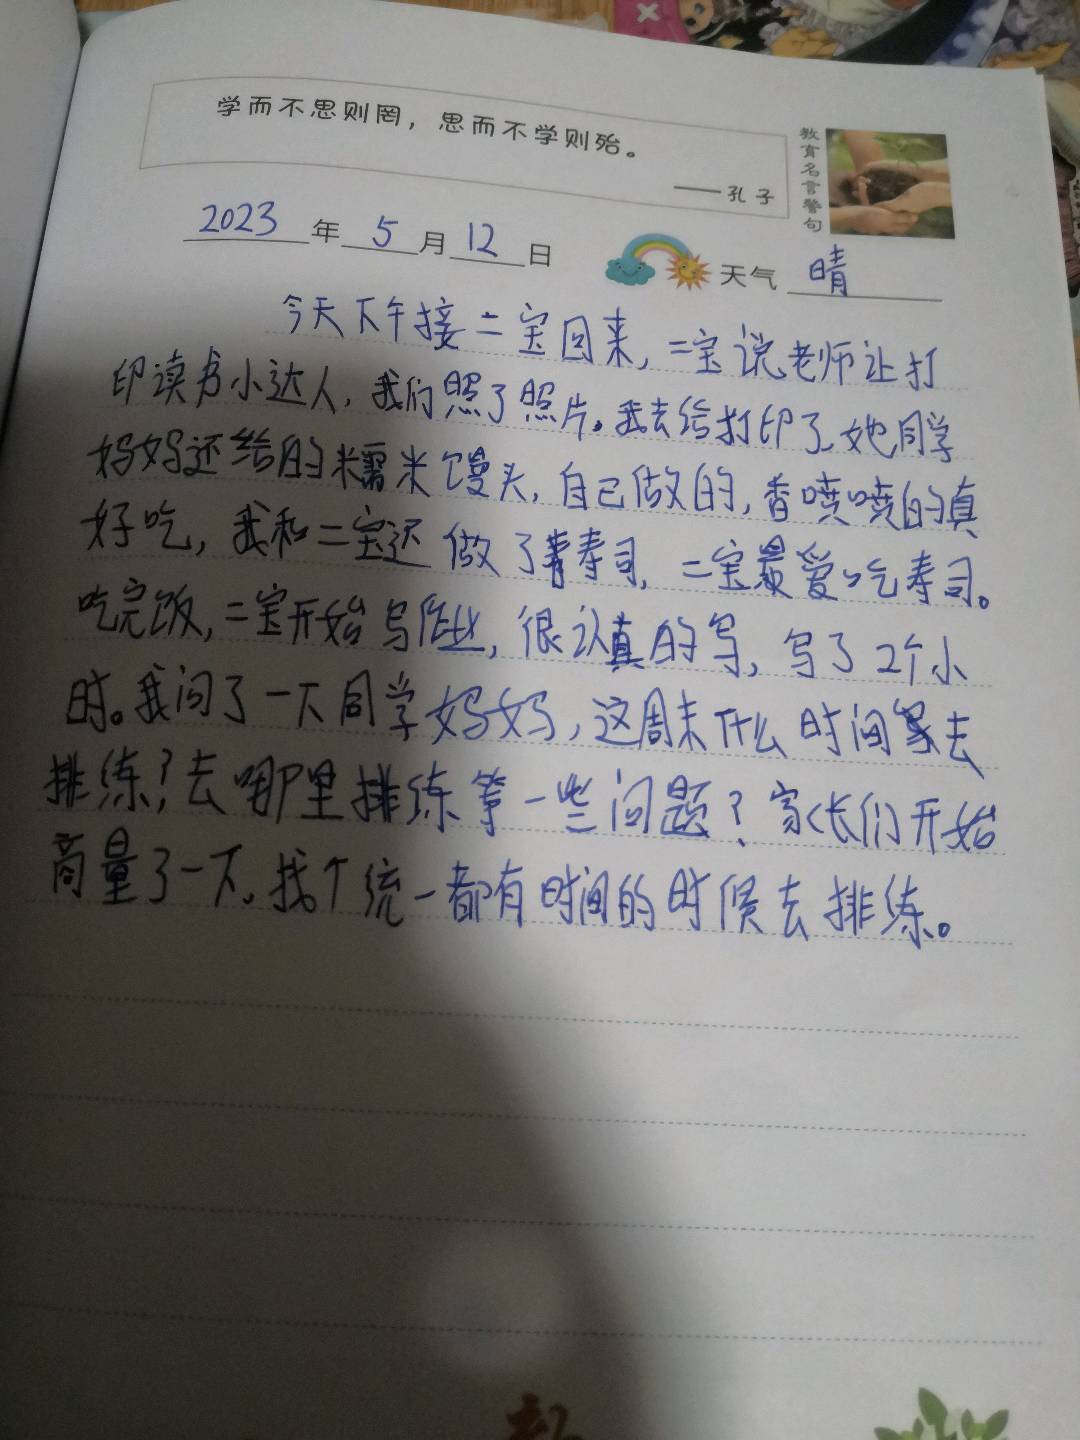 学而不思则罔，思而不学则殆。
——孔子
教育名言警句
2023年5月12日 天气 晴
今天下午接二宝回来，二宝说老师让打
印读书小达人，我们照了照片。我去给打印了，她同学
妈妈还给的糯米馒头，自己做的，香喷喷的真
好吃，我和二宝还做了寿司，二宝最爱吃寿司。
吃完饭，二宝开始写作业，很认真的写，写了2个小
时。我问了一下同学妈妈，这周末什么时间去
排练？去哪里排练等一些问题？家长们开始
商量了一下，找个统一都有时间的时候去排练。